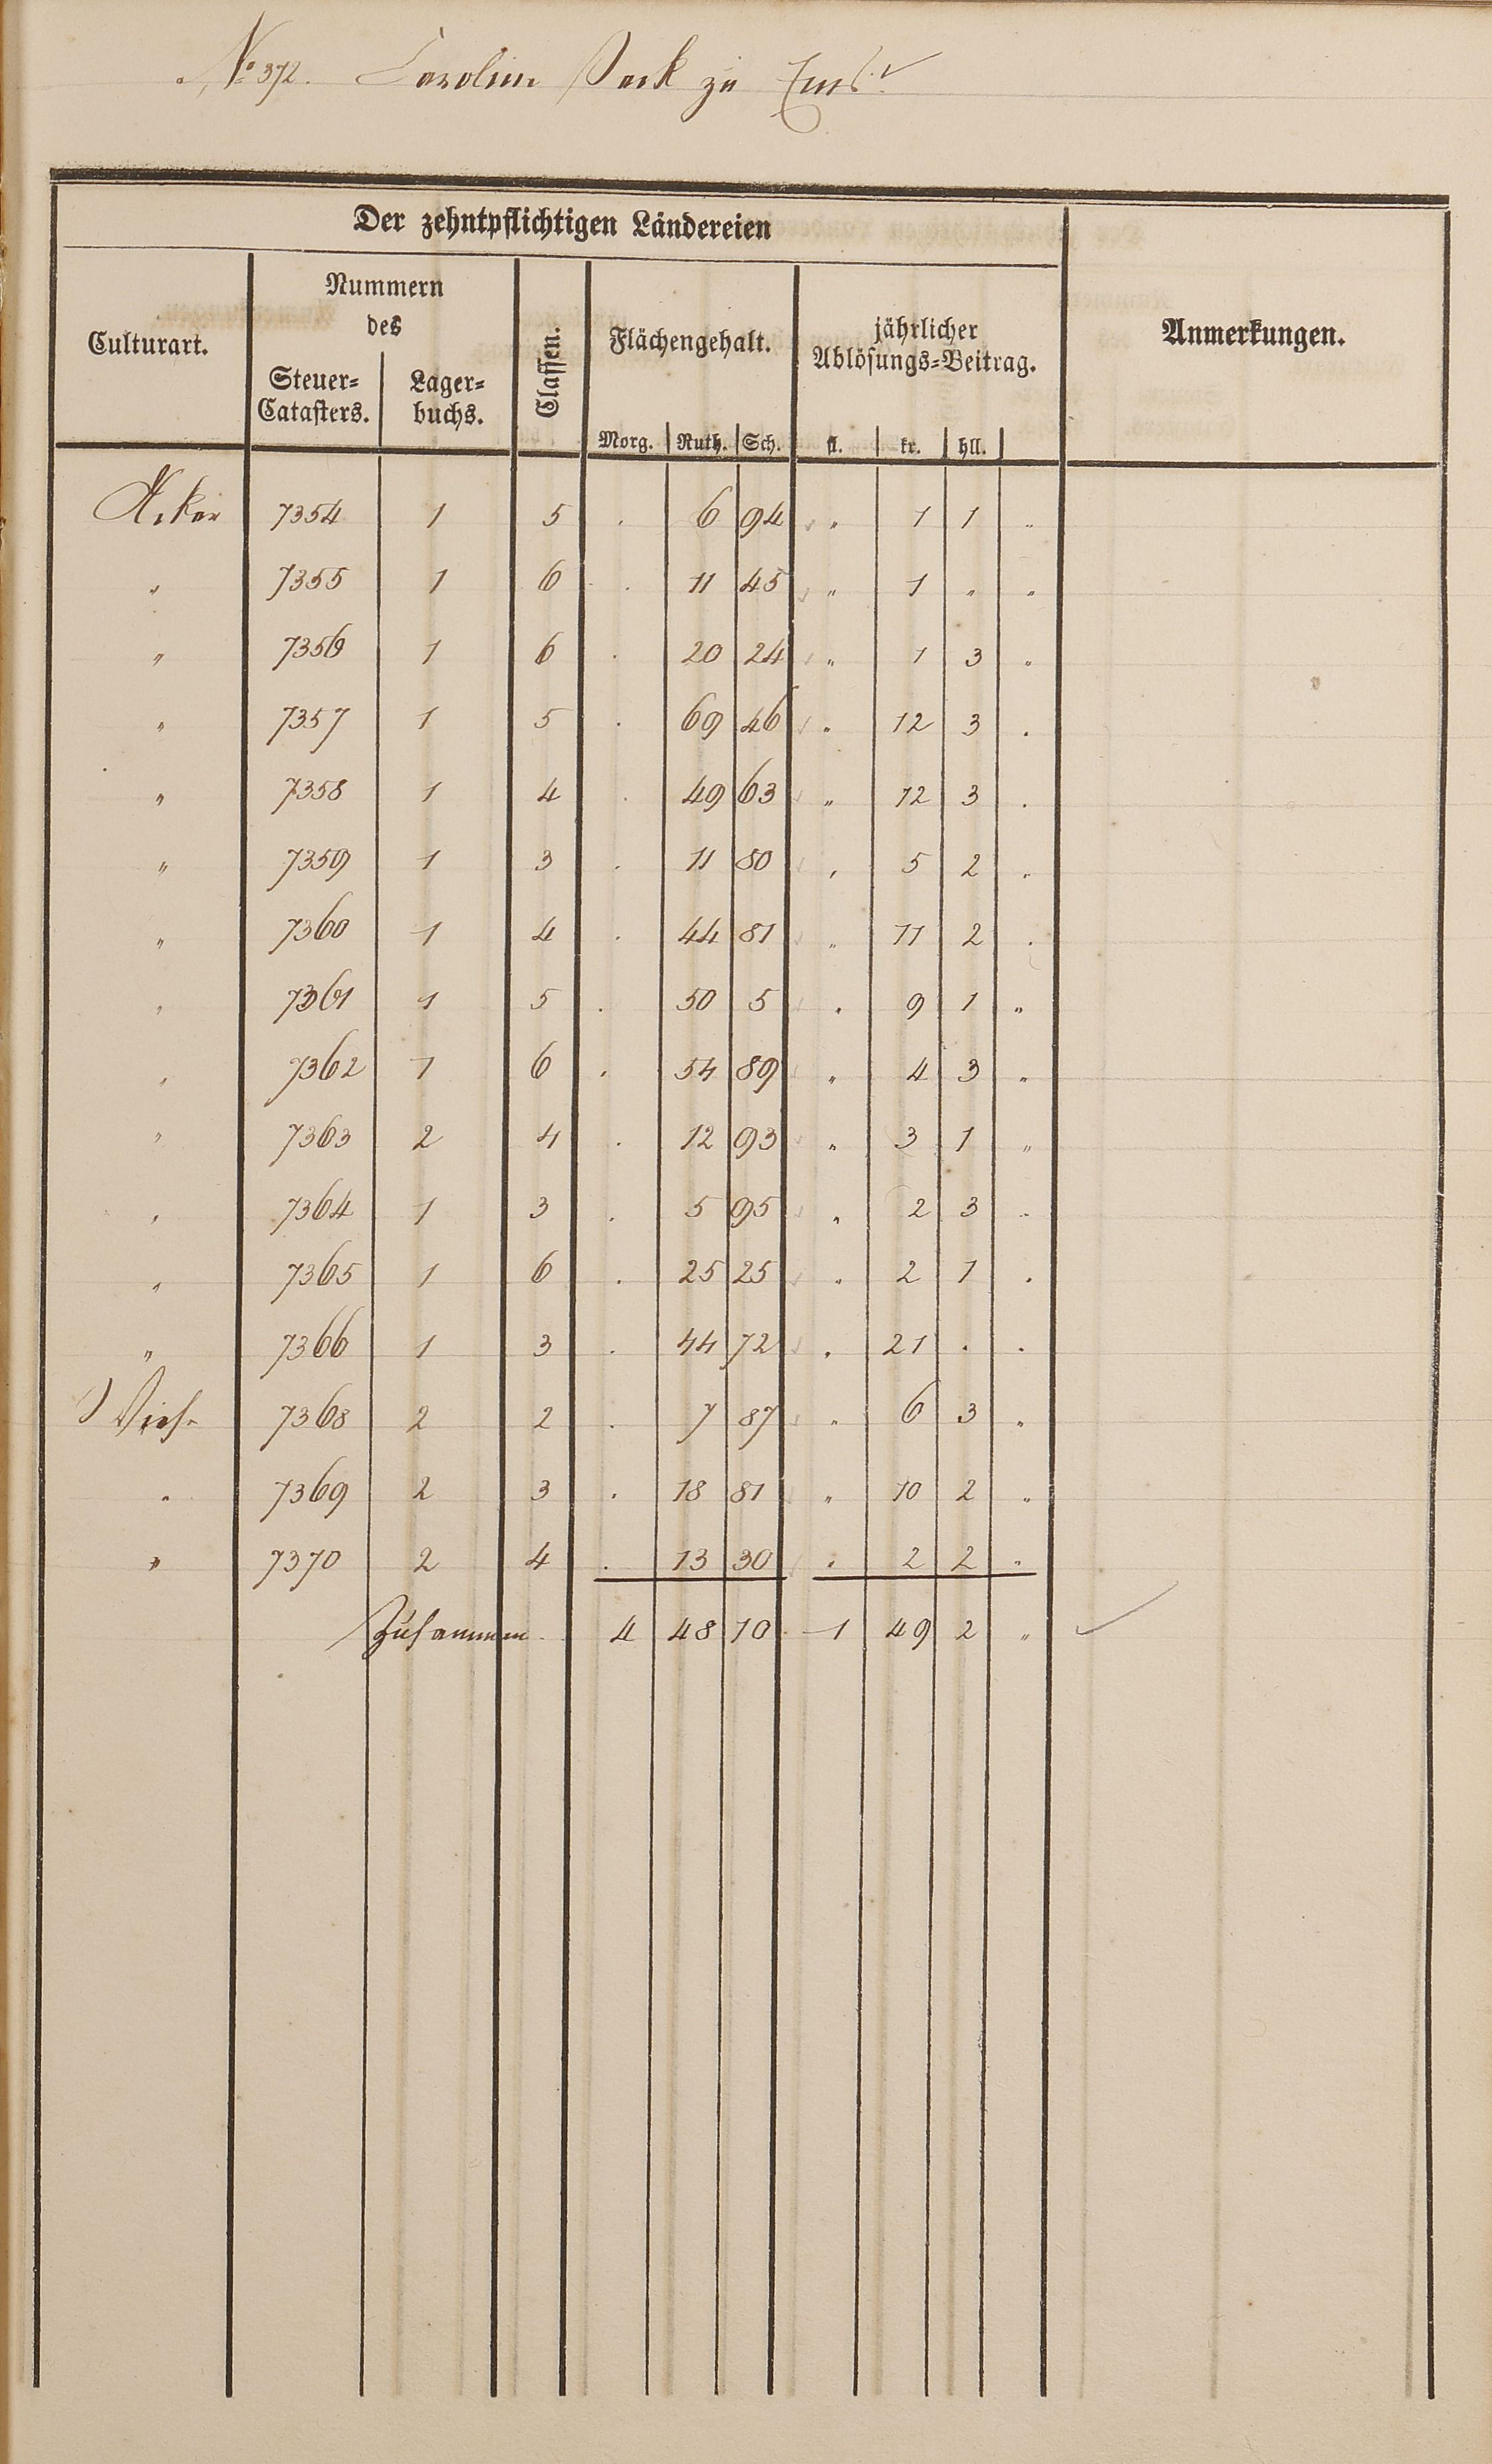 No 372. Caroline Pack zu Ems.
Der zehntpflichtigen Ländereien
Culturart. Nummern des Steuer-Catasters. Lager-buchs. Classen. Flächengehalt. jährlicher Ablösungs-Beitrag. Anmerkungen.
Morg. Ruth. Sch. fl. kr. hll.
Acker 7354 1 5 . 6 94 " 1 1 "
" 7355 1 6 . 11 45 " 1 " "
" 7356 1 6 . 20 24 " 1 3 "
" 7357 1 5 . 69 46 " 12 3 .
" 7358 1 4 . 49 63 " 12 3 .
" 7359 1 3 . 11 80 " 5 2 "
" 7360 1 4 . 44 81 " 11 2 .
" 7361 1 5 . 50 5 " 9 1 "
" 7362 1 6 . 54 89 " 4 3 "
" 7363 2 4 . 12 93 " 3 1 "
" 7364 1 3 . 5 95 " 2 3 "
" 7365 1 6 . 25 25 " 2 1 .
" 7366 1 3 . 44 72 " 21 . .
Wiese 7368 2 2 . 7 87 " 6 3 "
" 7369 2 3 . 18 81 " 10 2 "
" 7370 2 4 . 13 30 " 2 2 "
Zusammen 4 48 10 1 49 2 "